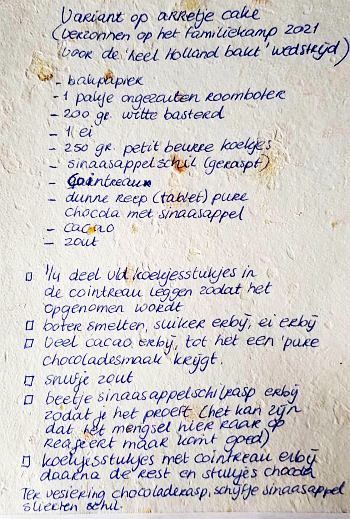 Variant op arretje cake
(verzonnen op het familiekamp 2021
voor de 'heel Holland bakt' wedstrijd)
- bakpapier
- 1 pakje ongezouten roomboter
- 200 gr. witte basterd
- 1 ei
- 250 gr. petit beurre koekjes
- sinaasappelschil (geraspt)
- Cointreau
- dunne reep (tablet) pure
chocola met sinaasappel
- cacao
- zout
□ 1/4 deel vld koekjesstukjes in
de cointreau leggen zodat het
opgenomen wordt
□ boter smelten, suiker erbij, ei erbij
□ veel cacao erbij, tot het een 'pure
chocoladesmaak' krijgt.
□ snufje zout
□ beetje sinaasappelschilrasp erbij
zodat je het proeft (het kan zijn
dat het mengsel hier raar op
reageert maar komt goed)
□ koekjesstukjes met cointreau erbij
daarna de rest en stukjes chocola
Ter versiering chocoladerasp, schijfje sinaasappel
slierten schil.